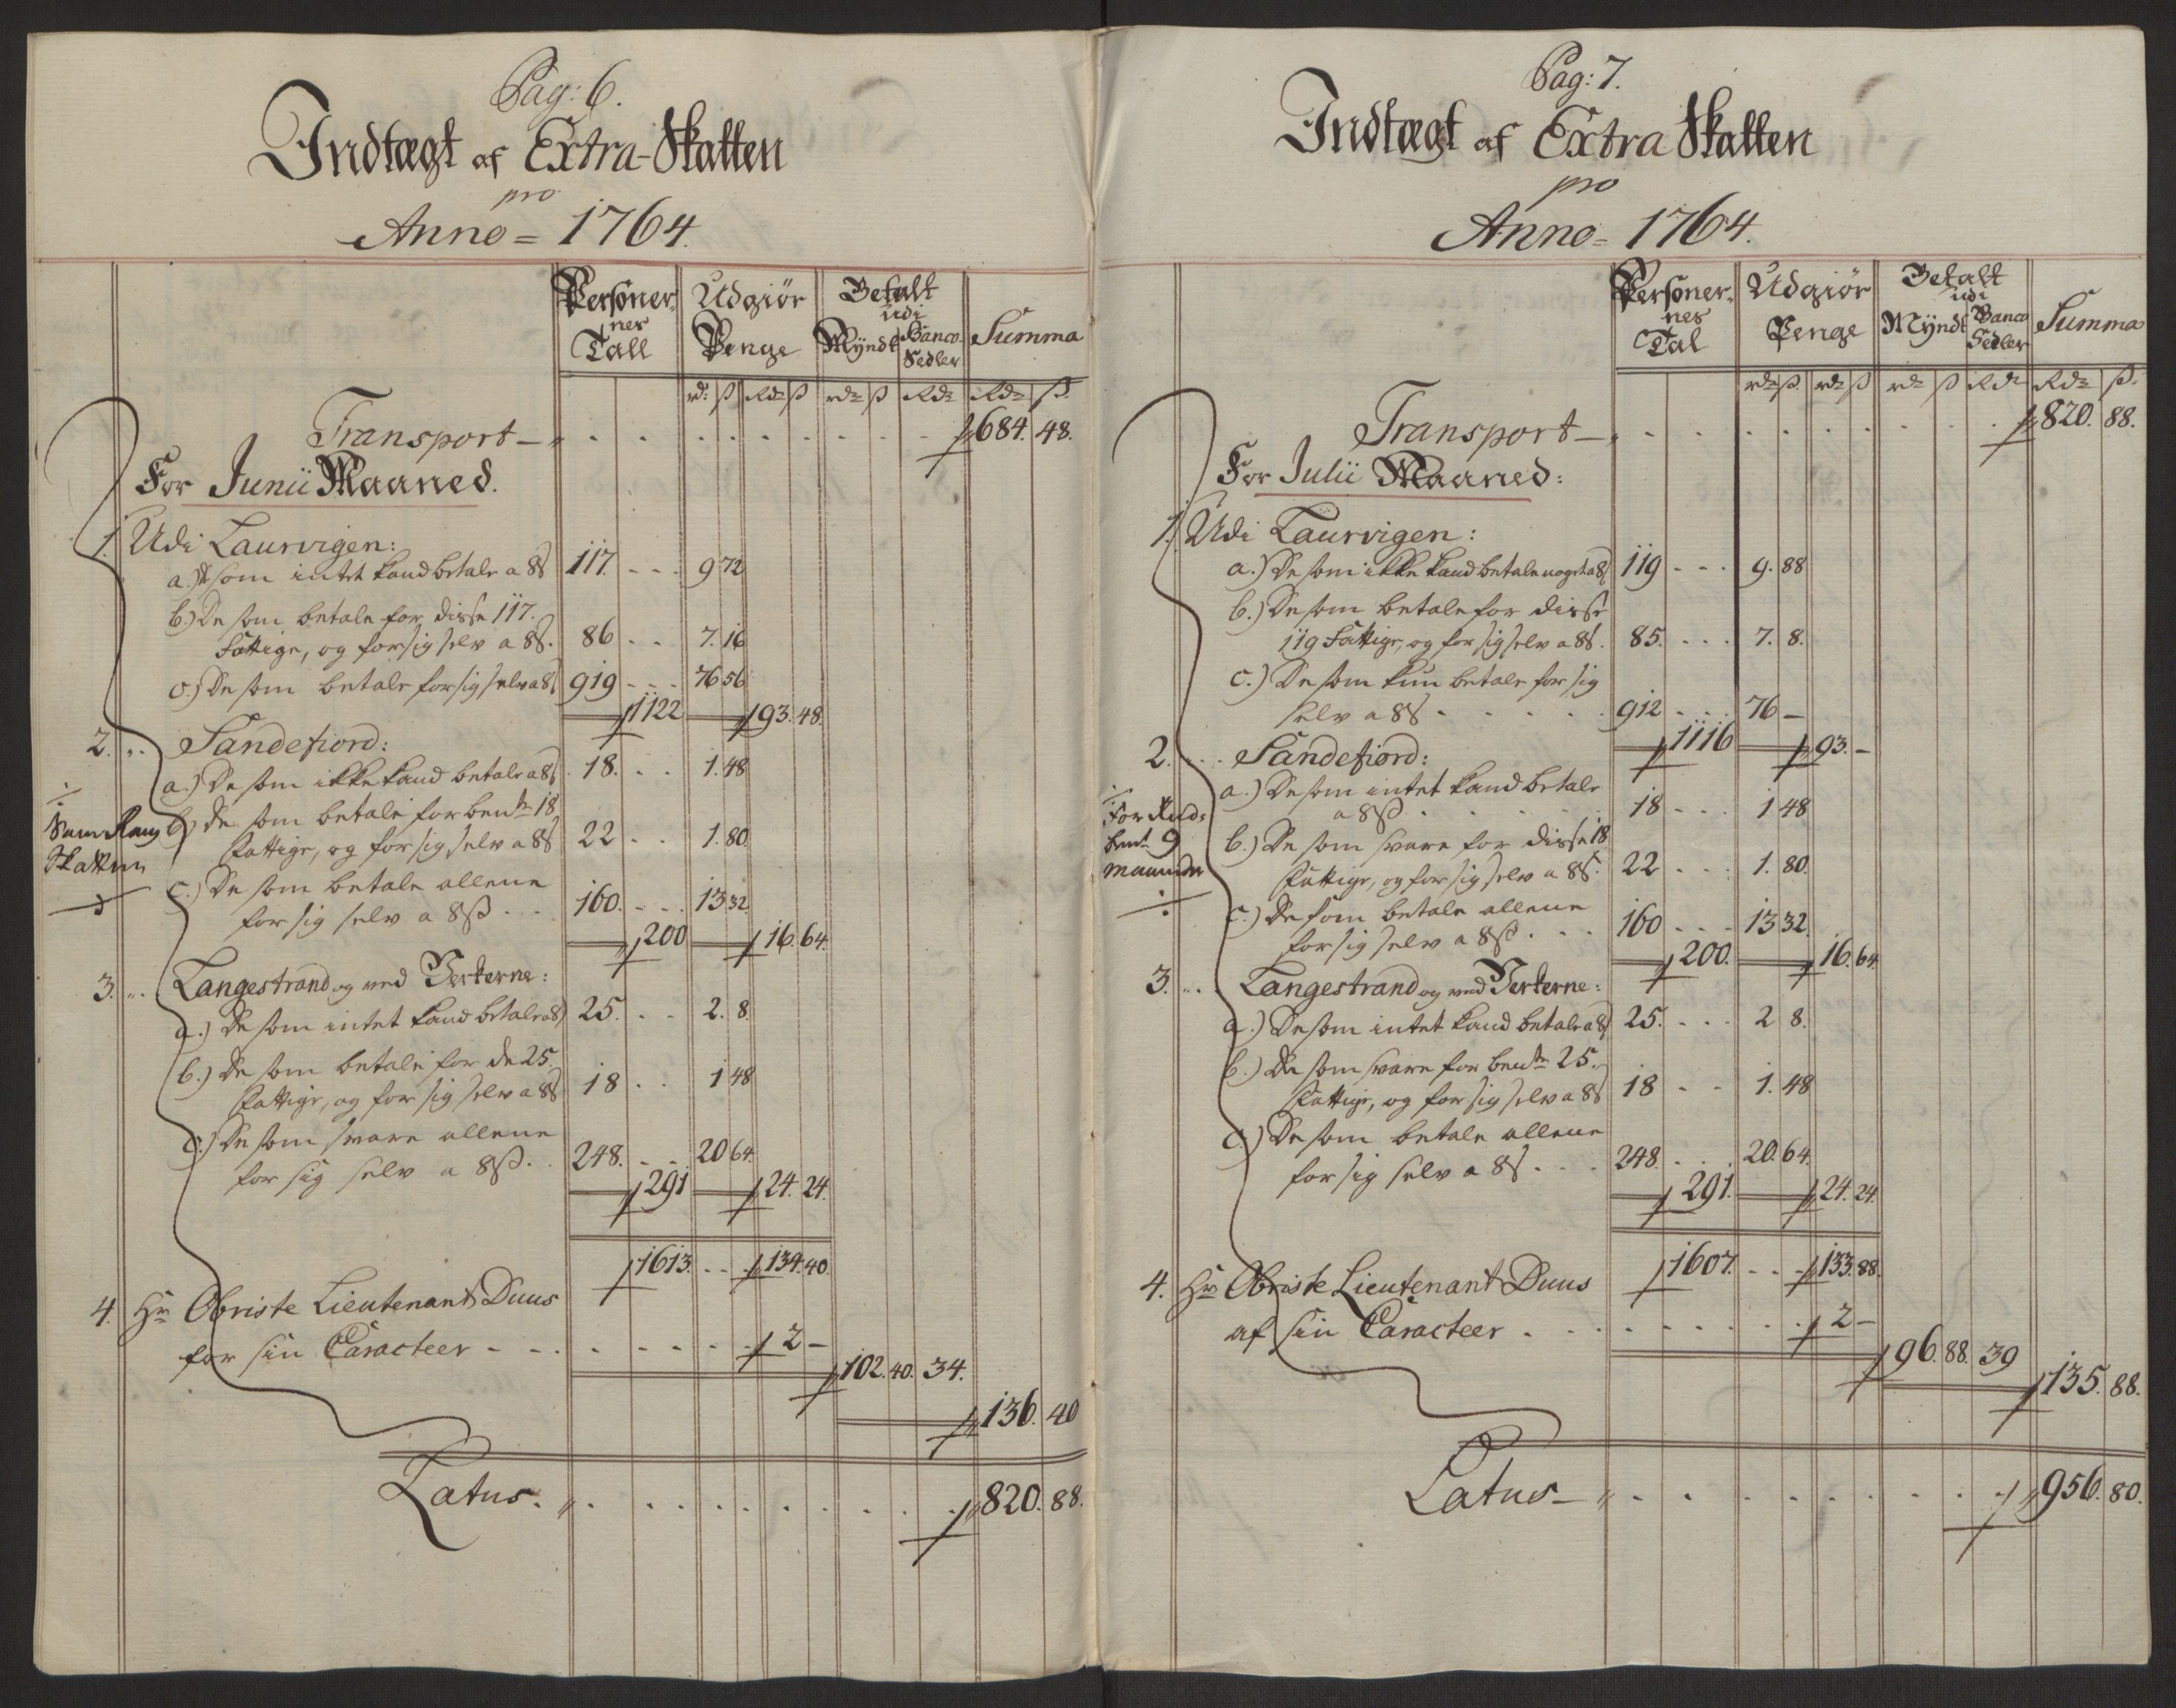 Pag: 6.
Indtægt af Extra-Skatten
pro
Anno = 1764.
Personer-
nes
Tall
Udgiør
Penge
Betalt
udi
Myndt
Banco-
Sedler
Summa
rd: ß Rdr ß rdr ß Rdr Rdr ß.
Transport — 684. 48.
For Junii Maaned.
1. Udi Laurvigen:
a.) De som intet kand betale a 8ß 117. - - 9 72
b.) De som betale for disse 117.
Fattige, og for sig selv a 8ß. 86 - - 7. 16
c.) De som betale for sig selv a 8ß 919 - - 76 56
1122 93. 48.
2. .. Sandefiord:
a.) De som ikke kand betale a 8ß. 18. - - 1. 48
b.) De som betale for bemte 18
Fattige, og for sig selv a 8ß 22 - - 1. 80
c.) De som betale allene
for sig selv a 8ß - - 160. - - 13 32
200 16. 64.
Skatten
3. .. Langestrand og ved Verkerne:
a.) De som intet kand betale a 8ß 25. - - 2. 8.
b.) De som betale for de 25.
Fattige, og for sig selv a 8ß 18 - - 1 48
c.) De som svare allene
for sig selv a 8ß. . 248. - - 20 64.
291 24. 24.
1613. - - 134. 40.
4. Hr Obriste Lieutenant Duus
for sin Caracteer - - - 2 —
102. 40. 34.
136. 40
Latus. 820. 88.
Pag: 7.
Indtægt af Extra Skatten
pro
Anno = 1764.
Personer-
nes
Tal
Udgiør
Penge
Betalt
udi
Myndt
Banco
Sedler
Summa
rdr ß. rdr ß rdr ß Rdr Rdr ß.
Transport — 820. 88.
For Julii Maaned:
1. Udi Laurvigen:
a.) De som ikke kand betale noget a 8ß 119 - - - 9. 88
b.) De som betale for disse
119 Fattige, og for sig selv a 8ß. 85. - - - 7. 8.
c.) De som kun betale for sig
selv a 8ß - - - 912 - - - 76 —
1116 93. —
2. .. Sandefiord:
a.) De som intet kand betale
a 8ß - - - 18 - - - 1 48
b.) De som svare for disse 18
Fattige, og for sig selv a 8ß. 22 - - - 1. 80.
c.) De som betale allene
for sig selv a 8ß - - - 160 - - - 13 32.
200. 16. 64
9
Maaneder
3. .. Langestrand og ved Verkerne:
a.) De som intet kand betale a 8ß 25. - - - 2 8.
b.) De som svare for bemte 25.
Fattige, og for sig selv a 8ß 18 - - 1. 48
c.) De som betale allene
for sig selv a 8ß - - - 248. - - 20. 64.
291. 24. 24.
1607. - - - 133. 88.
4. Hr Obriste Lieutenant Duus
af sin Caracteer - - - 2 —
96. 88. 39
135. 88.
Latus — 956. 80.